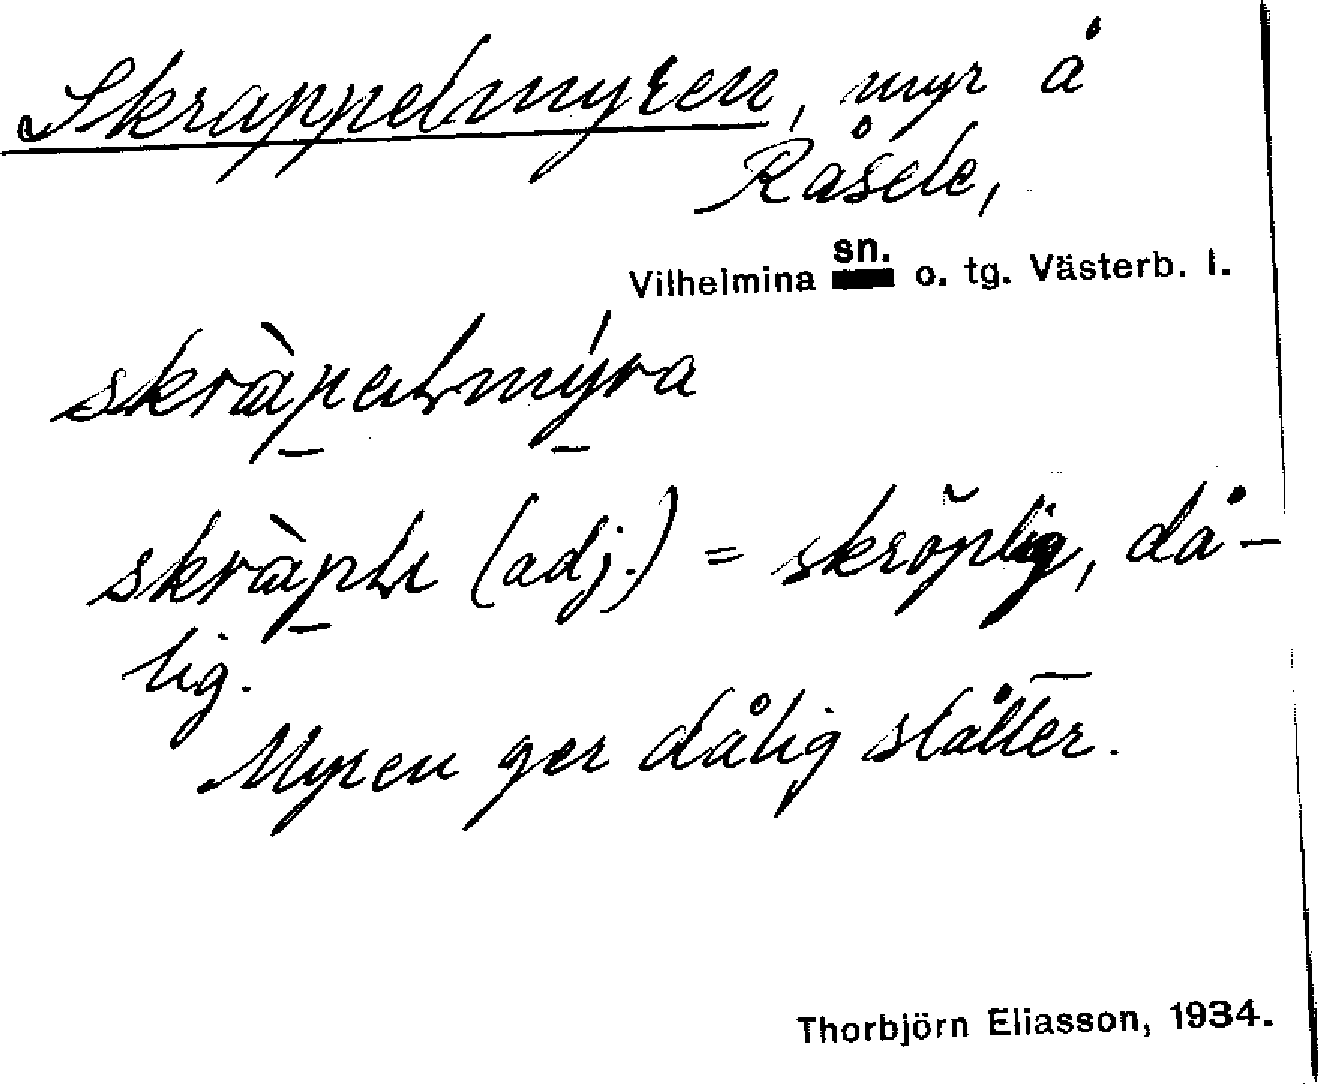 Skrappelmyren, myr å
Råsele,
Vilhelmina sn. o. tg. Västerb. l.
skràpelmýra
skràplı (adj.) = skröplig, då-
lig.
Myren ger dålig slåtter.
Thorbjörn Eliasson, 1934.